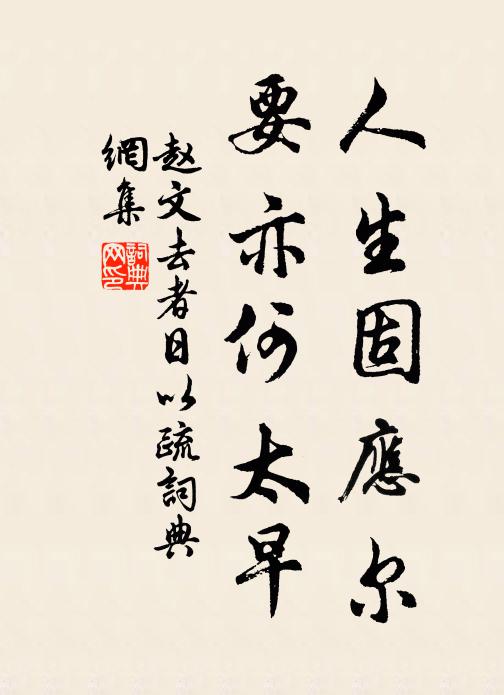 人生固應尔
要亦何太早
赵文去者日以疏詞典
網集
詞典网印